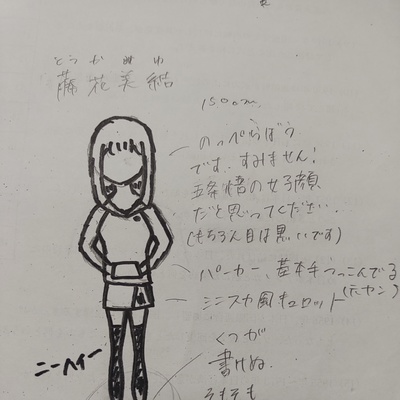 とうか みゆ
藤花美結
150cm
のっぺらぼう
です.すみません!
五条悟の女子顔
だと思ってください.
(もちろん目は黒いです)
パーカー、基本手つっこんでる
ミニスカ風キュロット
ニーハイー
くつが
書けぬ.
そもそも